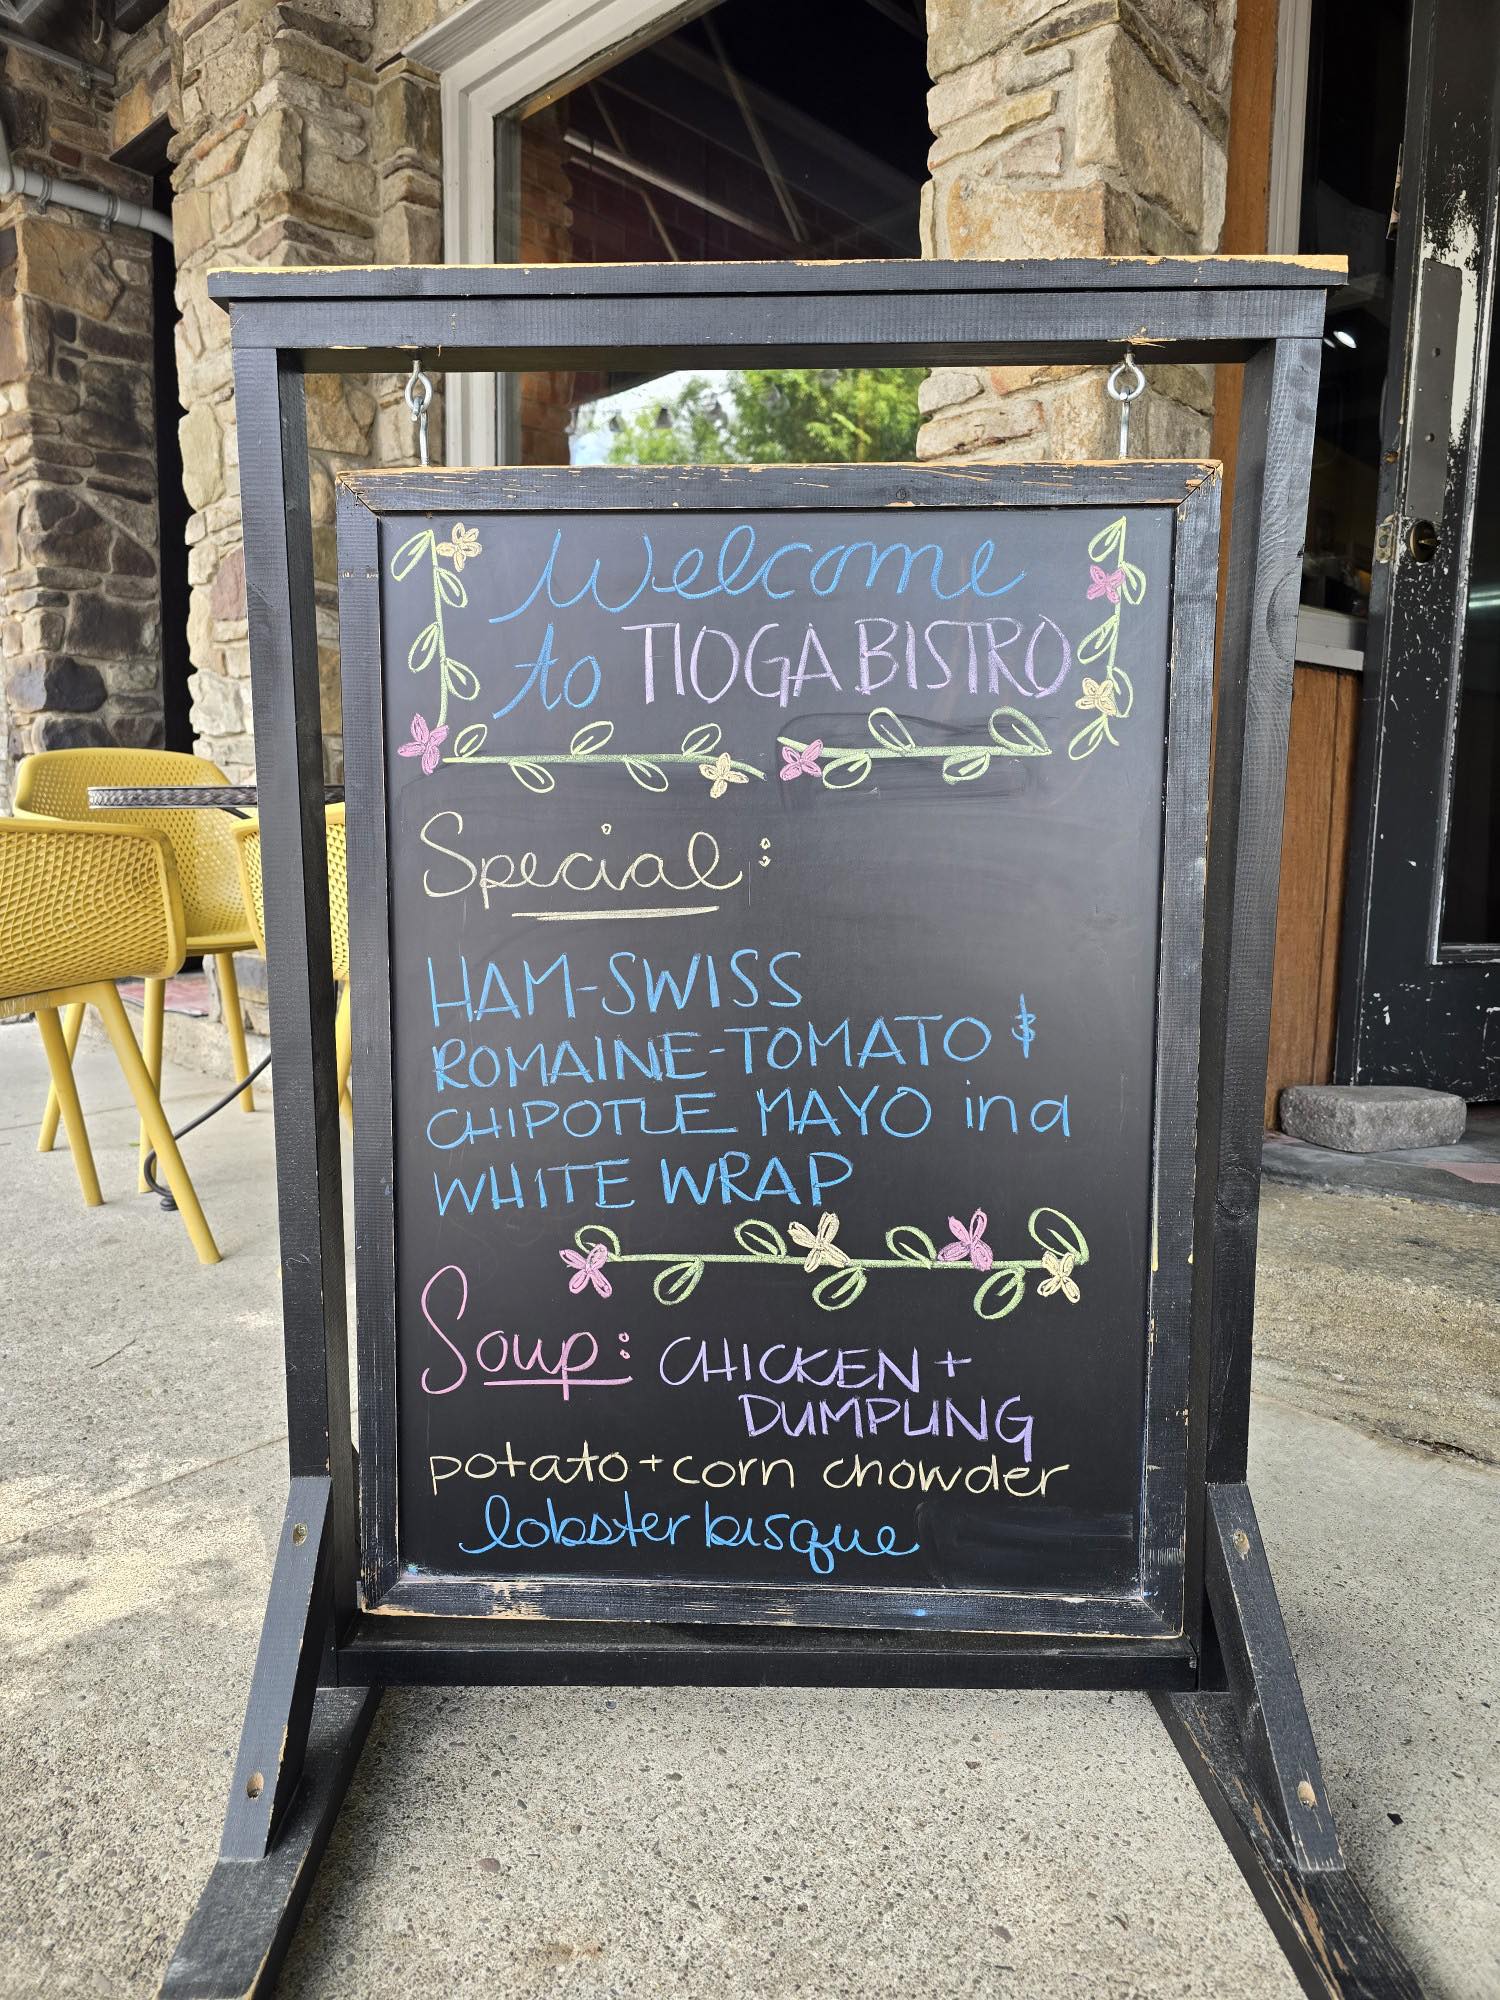 Welcome
to TIOGA BISTRO
Special:
HAM-SWISS
ROMAINE-TOMATO &
CHIPOTLE MAYO in a
WHITE WRAP
Soup: CHICKEN +
DUMPLING
potato + corn chowder
lobster bisque